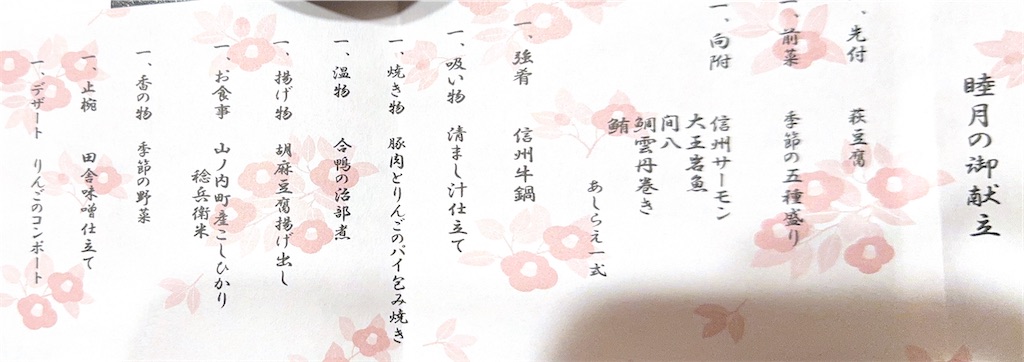 睦月の御献立
一、先付 萩豆腐
一、前菜 季節の五種盛り
一、向附 信州サーモン
大王岩魚
間八
鯛雲丹巻き
鮪
あしらえ一式
一、強肴 信州牛鍋
一、吸い物 清まし汁仕立て
一、焼き物 豚肉とりんごのパイ包み焼き
一、温物 合鴨の治部煮
一、揚げ物 胡麻豆腐揚げ出し
一、お食事 山ノ内町産こしひかり
稔兵衛米
一、香の物 季節の野菜
一、止椀 田舎味噌仕立て
一、デザート りんごのコンポート